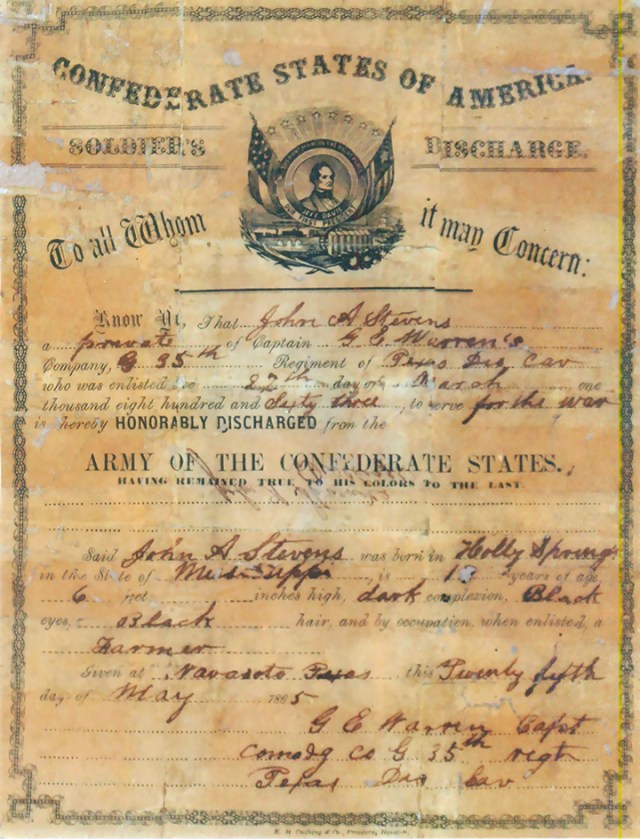 CONFEDERATE STATES OF AMERICA.
SOLDIER'S DISCHARGE.
JEFF DAVIS
OUR FIRST PRESIDENT
To all Whom it may Concern:
Know Ye, That John A Stevens
a private of Captain G E Warren's
Company, G 35th Regiment of Texas Cav
who was enlisted the day of March one
thousand eight hundred and Sixty three, to serve for the war
is hereby HONORABLY DISCHARGED from the
ARMY OF THE CONFEDERATE STATES.
HAVING REMAINED TRUE TO HIS COLORS TO THE LAST.
Said John A Stevens was born in Holly Springs
in the State of is years of age,
6 feet inches high, dark complexion, Black
eyes, Black hair, and by occupation, when enlisted, a
Farmer
Given at Navasoto Texas this Twenty fifth
day of May 1865
G E Warren Capt
Comdg Co G 35th regt
Texas Cav